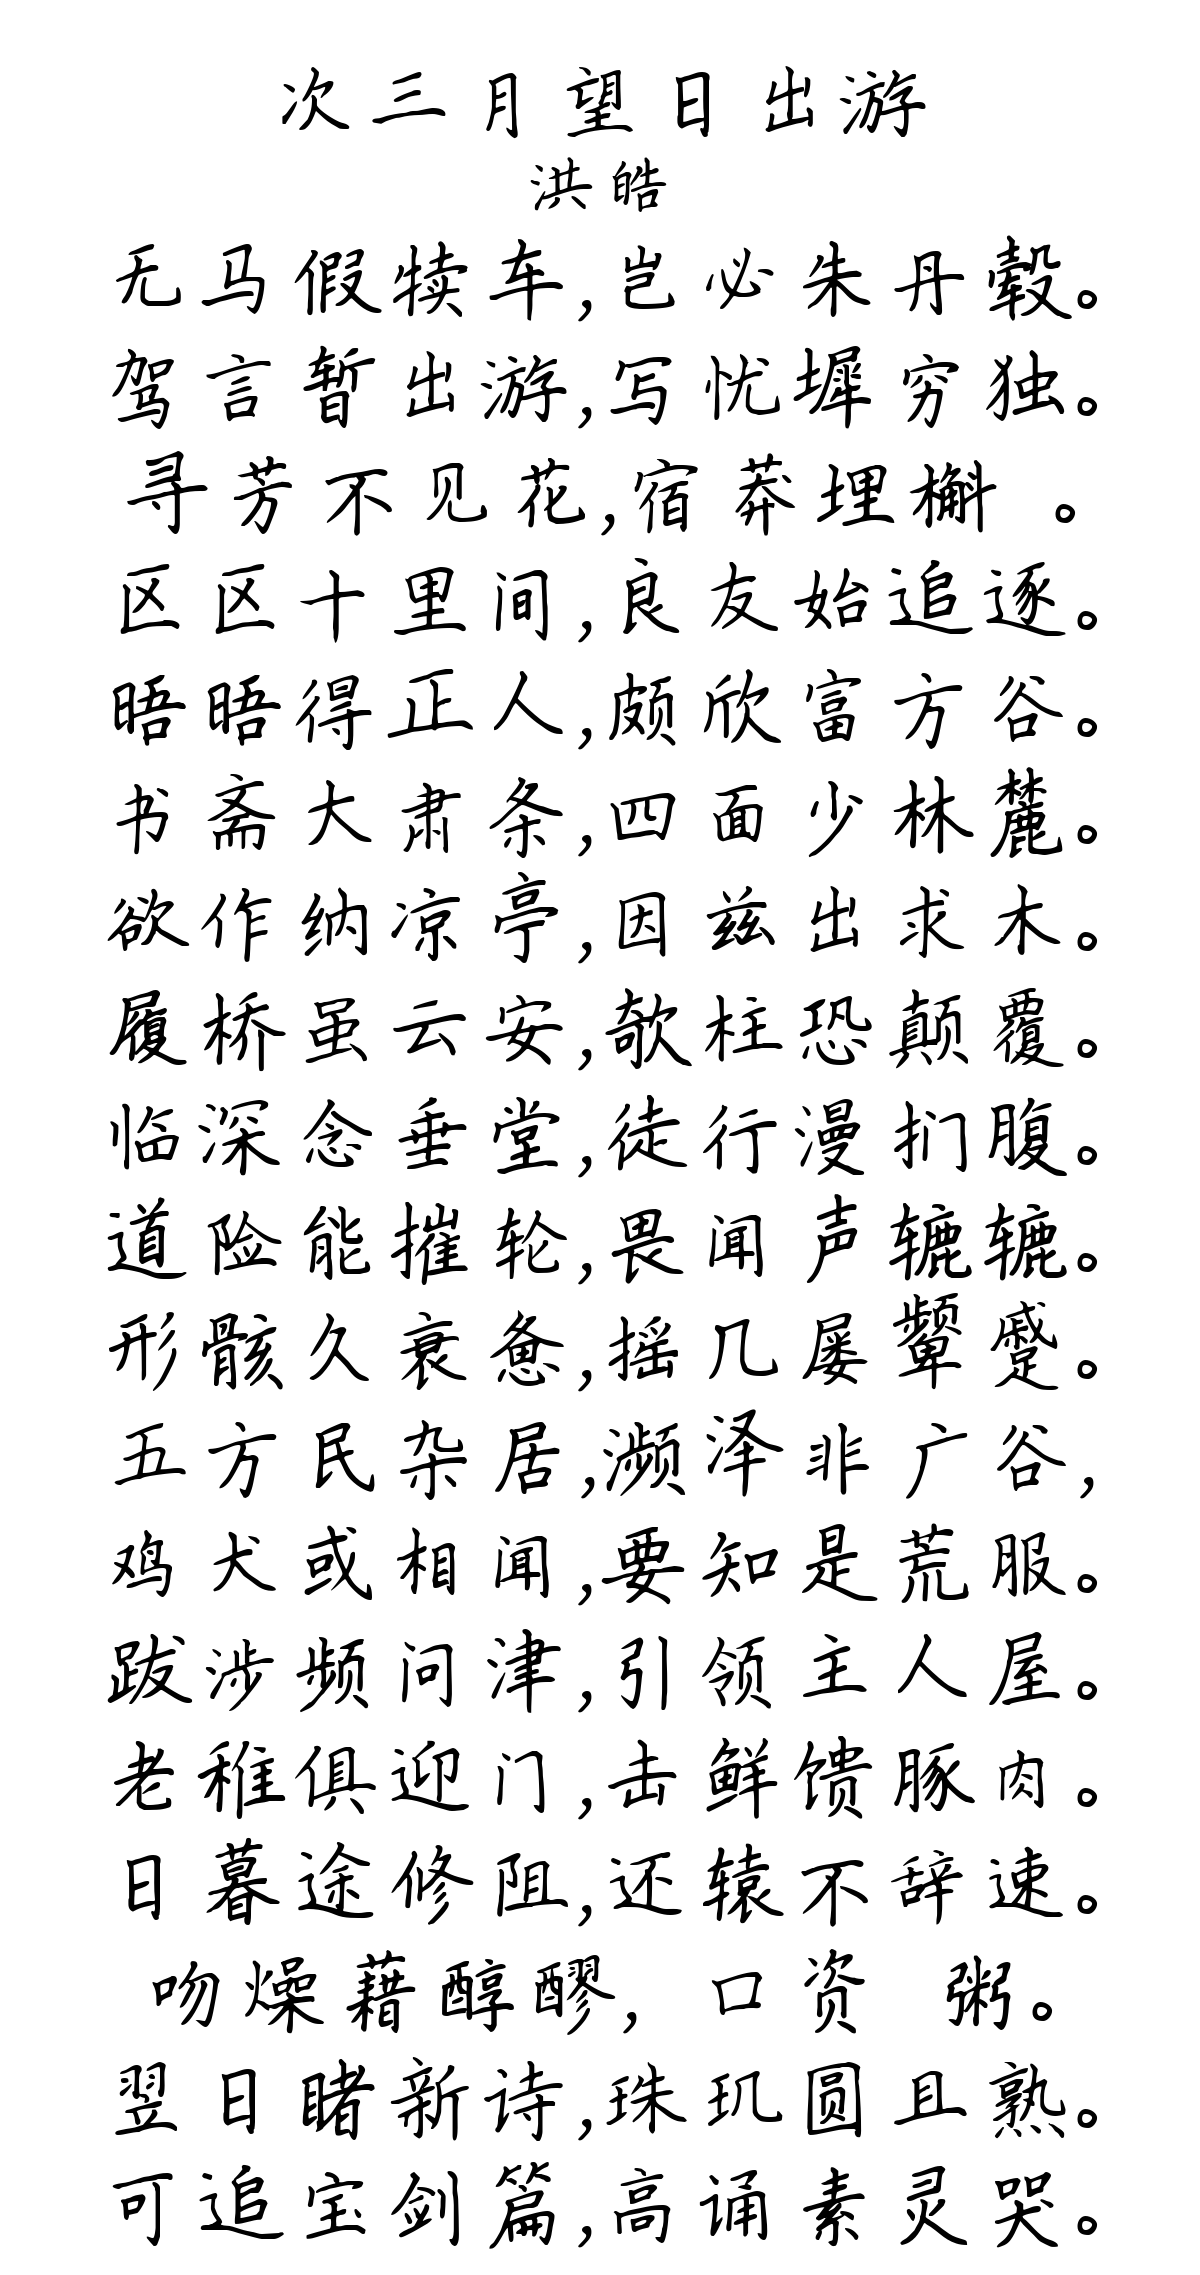 次三月望日出游
洪皓
无马假犊车,岂必朱丹毂。
驾言暂出游,写忧墀穷独。
寻芳不见花,宿莽埋槲 。
区区十里间,良友始追逐。
晤晤得正人,颇欣富方谷。
书斋大肃条,四面少林麓。
欲作纳凉亭,因兹出求木。
履桥虽云安,欹柱恐颠覆。
临深念垂堂,徒行漫扪腹。
道险能摧轮,畏闻声辘辘。
形骸久衰惫,摇几屡颦蹙。
五方民杂居,濒泽非广谷,
鸡犬或相闻,要知是荒服。
跋涉频问津,引领主人屋。
老稚俱迎门,击鲜馈豚肉。
日暮途修阻,还辕不辞速。
吻燥藉醇醪, 口资 粥。
翌日睹新诗,珠玑圆且熟。
可追宝剑篇,高诵素灵哭。